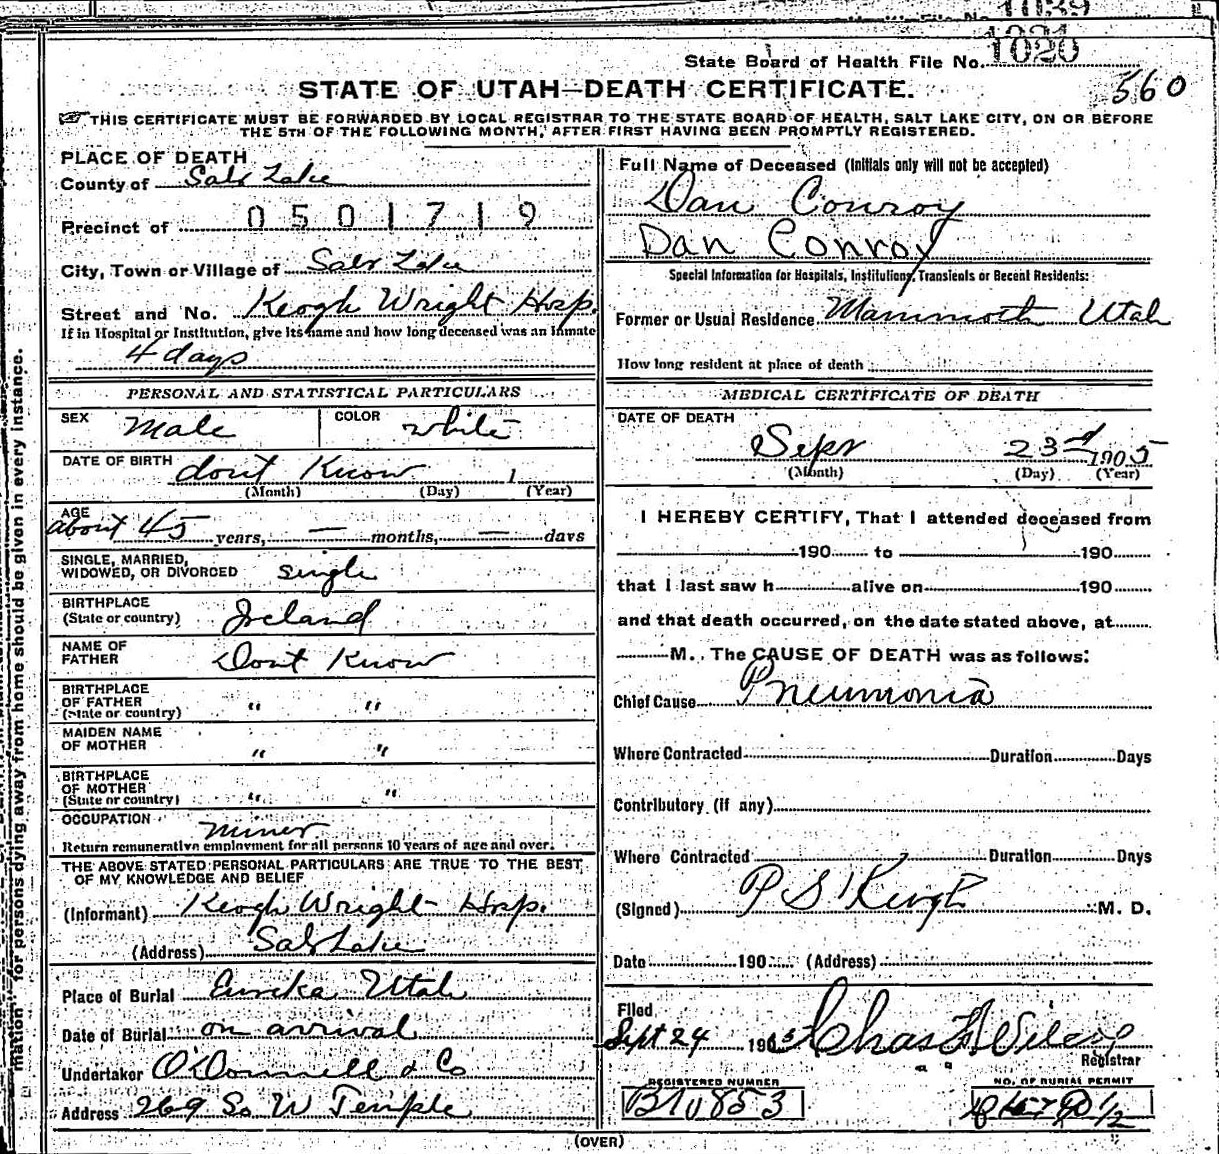 1039
1020
State Board of Health File No.
560
STATE OF UTAH—DEATH CERTIFICATE.
THIS CERTIFICATE MUST BE FORWARDED BY LOCAL REGISTRAR TO THE STATE BOARD OF HEALTH, SALT LAKE CITY, ON OR BEFORE
THE 5TH OF THE FOLLOWING MONTH, AFTER FIRST HAVING BEEN PROMPTLY REGISTERED.
PLACE OF DEATH
County of Salt Lake
Precinct of 0501719
City, Town or Village of Salt Lake
Street and No. Keogh Wright Hosp.
If in Hospital or Institution, give its name and how long deceased was an inmate
4 days
Full Name of Deceased (Initials only will not be accepted)
Dan Conroy
Dan Conroy
Special Information for Hospitals, Institutions, Transients or Recent Residents:
Former or Usual Residence Mammoth Utah
How long resident at place of death
PERSONAL AND STATISTICAL PARTICULARS
SEX Male COLOR white
DATE OF BIRTH dont Know 1
(Month) (Day) (Year)
AGE
about 45 years, — months, — days
SINGLE, MARRIED,
WIDOWED, OR DIVORCED single
BIRTHPLACE
(State or country) Ireland
NAME OF
FATHER Dont Know
BIRTHPLACE
OF FATHER
(State or country) " "
MAIDEN NAME
OF MOTHER " "
BIRTHPLACE
OF MOTHER
(State or country) " "
OCCUPATION Miner
Return remunerative employment for all persons 10 years of age and over.
THE ABOVE STATED PERSONAL PARTICULARS ARE TRUE TO THE BEST
OF MY KNOWLEDGE AND BELIEF
(Informant) Keogh Wright Hosp.
(Address) Salt Lake
Place of Burial Eureka Utah
Date of Burial on arrival
Undertaker O'Donnell & Co
Address 269 So W Temple
MEDICAL CERTIFICATE OF DEATH
DATE OF DEATH
Sept 23rd 1905
(Month) (Day) (Year)
I HEREBY CERTIFY, That I attended deceased from
190 to 190
that I last saw h alive on 190
and that death occurred, on the date stated above, at
M. The CAUSE OF DEATH was as follows:
Chief Cause Pneumonia
Where Contracted Duration Days
Contributory (if any)
Where Contracted Duration Days
(Signed) P S Keogh M. D.
Date 190 (Address)
Filed
Sept 24 1905 Chas
Registrar
REGISTERED NUMBER
B10853
NO. OF BURIAL PERMIT
(OVER)
mation" for persons dying away from home should be given in every instance.